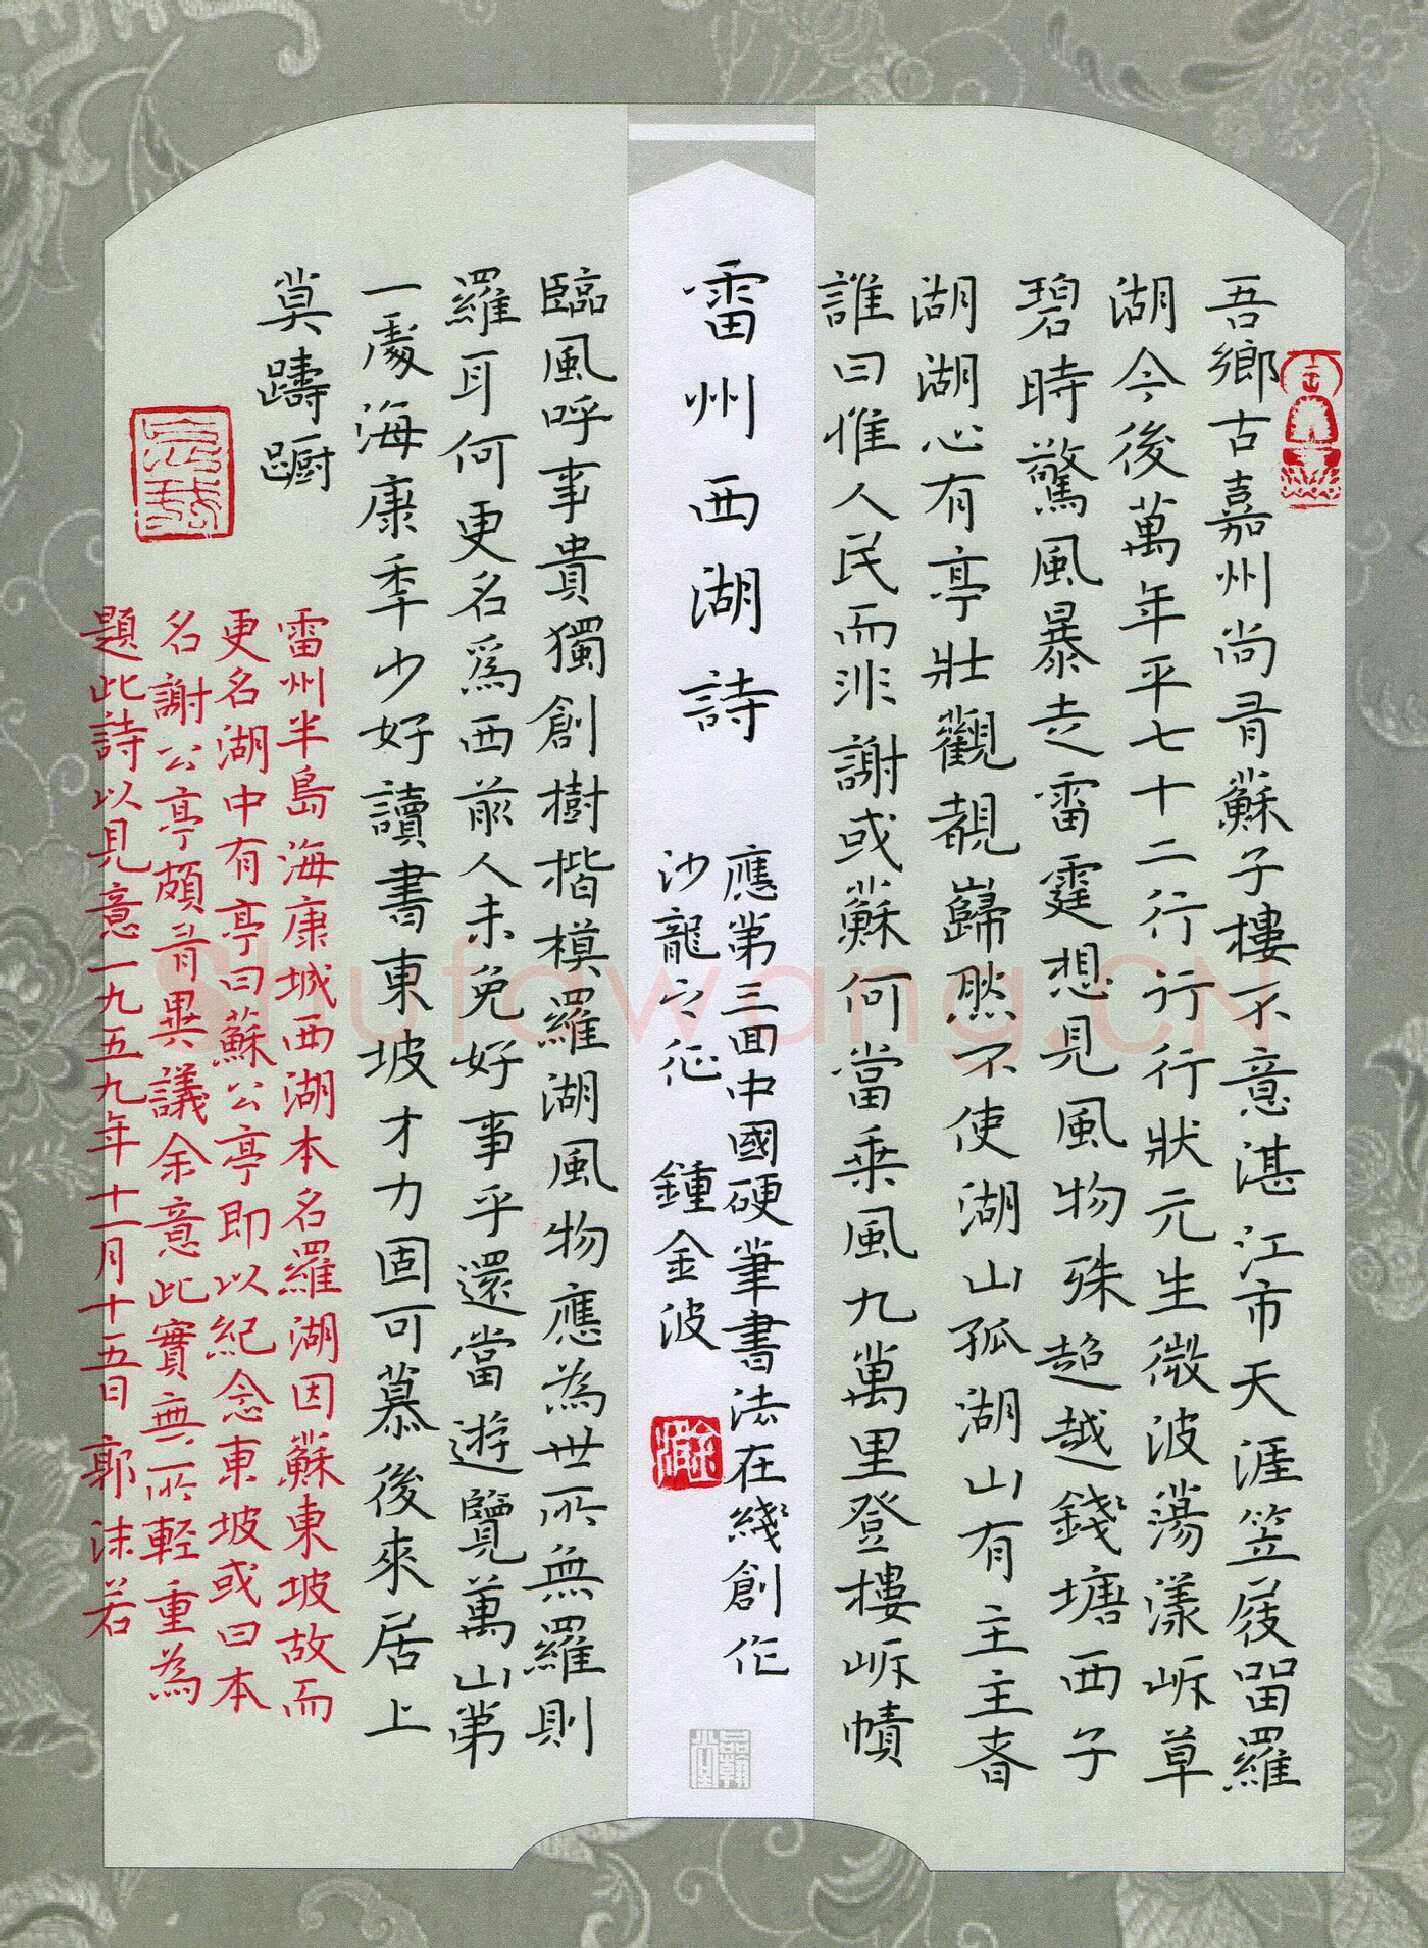 吾鄉古嘉州尚有蘇子樓不意湛江市天涯笠屐留羅
湖今後萬年平七十二行行行行狀元生微波蕩漾岸草
碧時驚風暴走雷霆想見風物殊超越錢塘西子
湖湖心有亭壯觀覩巋然不使湖山孤湖山有主主者
誰曰惟人民而非謝或蘇何當乘風九萬里登樓岸幘
雷州西湖詩
應第三回中國硬筆書法在綫創作
沙龍之征 鍾金波
臨風呼事貴獨創樹楷模羅湖風物應為世所無羅則
羅耳何更名爲西前人未免好事乎還當遊覽萬山第
一處海康年少好讀書東坡才力固可慕後來居上
莫躊躕
雷州半島海康城西湖本名羅湖因蘇東坡故而
更名湖中有亭曰蘇公亭即以紀念東坡或曰本
名謝公亭頗有異議余意此實無所輕重為
題此詩以見意一九五九年十一月十五日郭沫若
Shufawang.CN